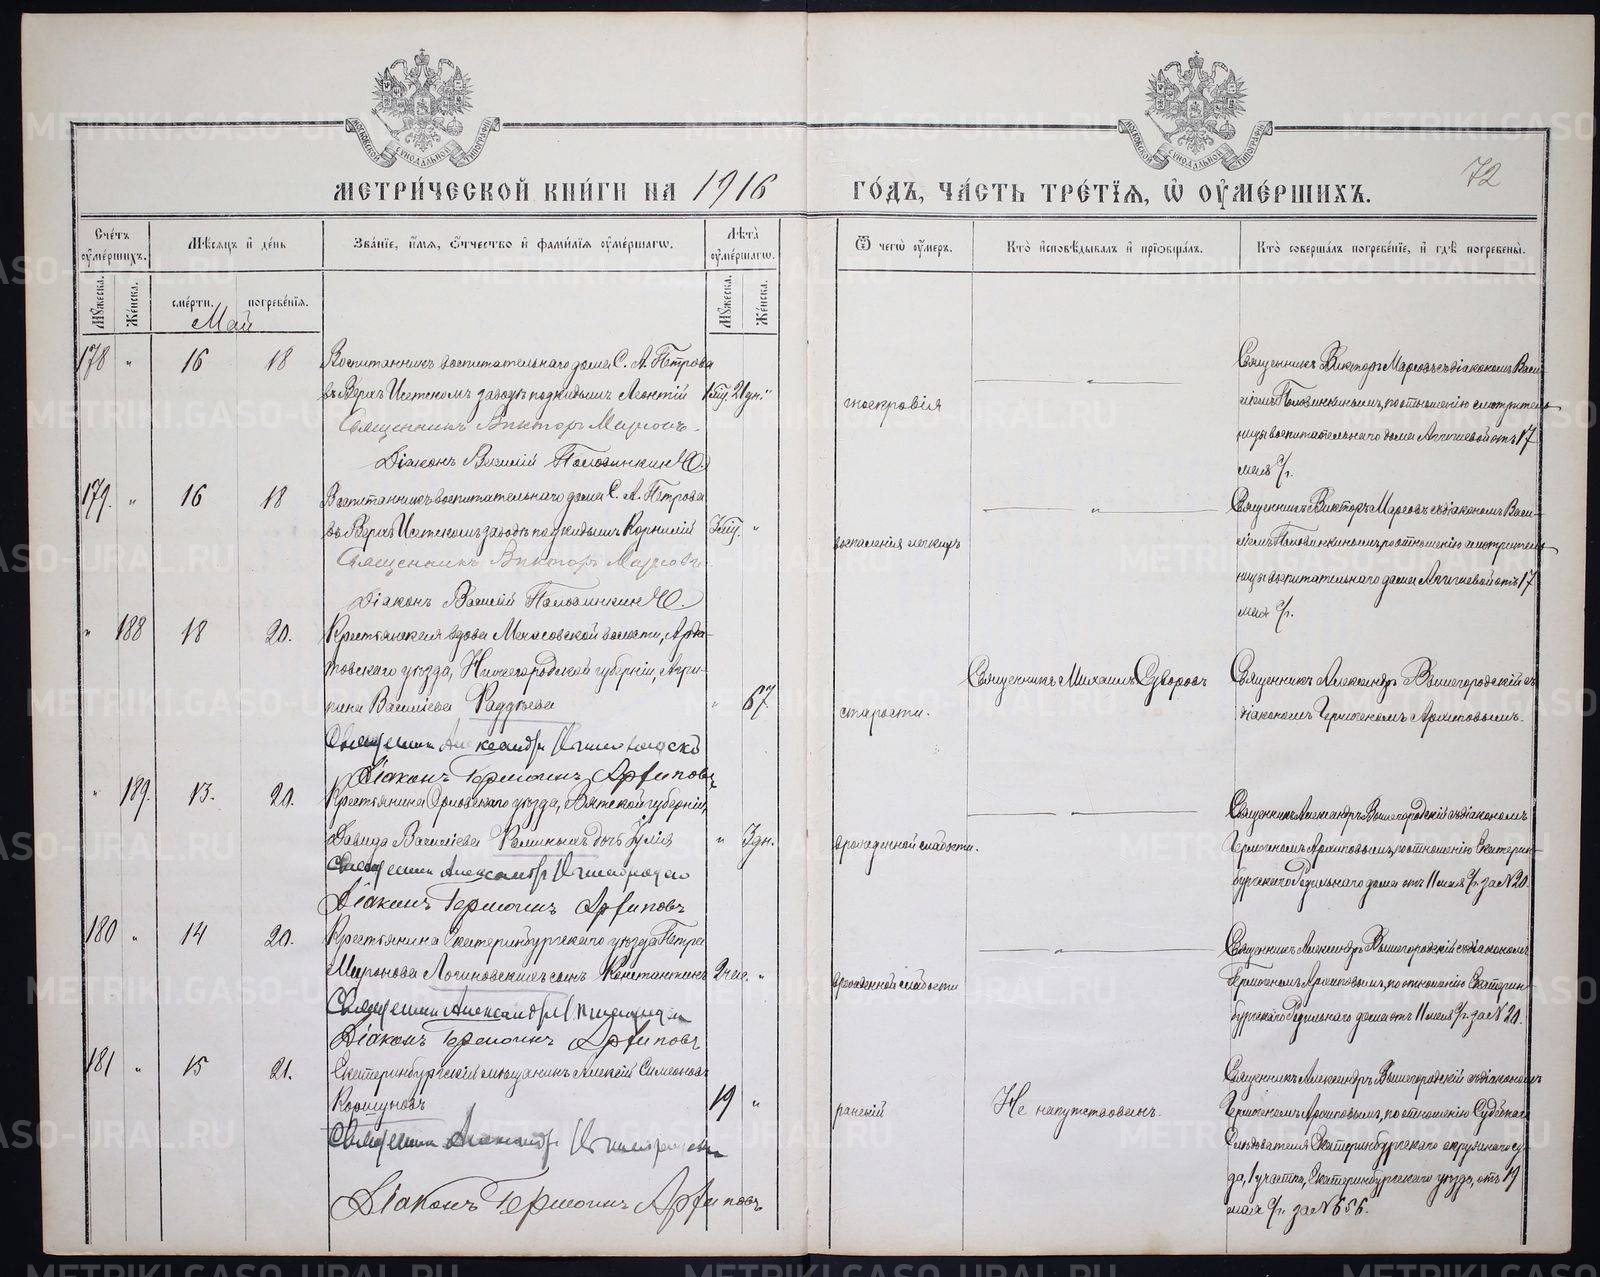 МОСКОВСКОЙ СѴНОДАЛЬНОЙ ТИПОГРАФІИ
МОСКОВСКОЙ СѴНОДАЛЬНОЙ ТИПОГРАФІИ
72
МЕТРИ́ЧЕСКОЙ КНИ́ГИ НА 1916 ГО́ДЪ, ЧА́СТЬ ТРЕ́ТІѦ, Ѡ҆ ОУ҆МЕ́РШИХЪ.
Сче́тъ оу҆ме́ршихъ.
Мѣ́сяцъ и҆ де́нь
Зва́нїе, и҆́мя, ѻ҆́тчество и҆ фами́лїя оу҆ме́ршагѡ.
Лѣ́та оу҆ме́ршагѡ.
Ѿ чегѡ̀ оу҆́меръ.
Кто̀ и҆сповѣ́дывалъ и҆ прїѡбща́лъ.
Кто̀ соверша́лъ погребе́нїе, и҆ гдѣ̀ погребены̀.
Мꙋ́жеска. Же́нска. сме́рти. погребе́нїя. Мꙋ́жеска. Же́нска.
Май
178 " 16 18 Воспитанникъ воспитательнаго дома С. А. Петрова
въ Верхъ-Исетскомъ заводѣ подкидышъ Леонтій 1 мѣс. 21 дн. "
Священникъ Викторъ
Діаконъ Василій
гноекровія
"
Священникъ Викторъ съ діакономъ Васи-
ліемъ по отношенію смотритель-
ницы воспитательнаго дома отъ 17
мая с/г.
179. " 16 18 Воспитанникъ воспитательнаго дома С. А. Петрова
въ Верхъ-Исетскомъ заводѣ подкидышъ Корнилій "
Священникъ Викторъ
Діаконъ Василій
воспаленія легкихъ
"
Священникъ Викторъ съ діакономъ Васи-
ліемъ по отношенію смотритель-
ницы воспитательнаго дома отъ 17
мая с/г.
" 188 18 20. Крестьянская вдова волости, Арда-
товскаго уѣзда, Нижегородской губерніи, Аки-
лина Васильева Фаддѣева " 67
Священникъ Александръ Вышегородскій
Діаконъ Гермогенъ Архиповъ
старости.
Священникъ Михаилъ Суворовъ
Священникъ Александръ Вышегородскій съ
діакономъ Гермогеномъ Архиповымъ.
" 189. 13. 20. Крестьянина Орловскаго уѣзда, Вятской губерніи,
Давида Васильева дочь Юлія " 3 дн.
Священникъ Александръ Вышегородскій
Діаконъ Гермогенъ Архиповъ
врожденной слабости.
"
Священникъ Александръ Вышегородскій съ діакономъ
Гермогеномъ Архиповымъ, по отношенію Екатерин-
бургскаго Родильнаго дома отъ 11 мая с/г. за № 20.
180 " 14 20. Крестьянина Екатеринбургскаго уѣзда Петра
Миронова Логиновскихъ сынъ Константинъ 2 час. "
Священникъ Александръ Вышегородскій
Діаконъ Гермогенъ Архиповъ
врожденной слабости
"
Священникъ Александръ Вышегородскій съ діакономъ
Гермогеномъ Архиповымъ, по отношенію Екатерин-
бургскаго Родильнаго дома отъ 11 мая с/г. за № 20.
181 " 15 21. Екатеринбургскій мѣщанинъ Алексій Симеоновъ
Коршуновъ 19 "
Священникъ Александръ Вышегородскій
Діаконъ Гермогенъ Архиповъ
раненій
Не напутствованъ.
Священникъ Александръ Вышегородскій съ діакономъ
Гермогеномъ Архиповымъ, по отношенію Судебнаго
Слѣдователя Екатеринбургскаго окружнаго су-
да, 1 участка, Екатеринбургскаго уѣзда, отъ 19
мая с/г. за № 656.
METRIKI.GASO-URAL.RU